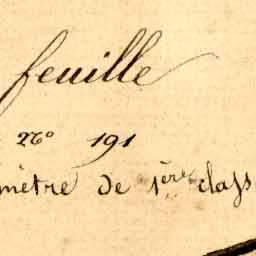 feuille
N° 191
mètre de 1ère class